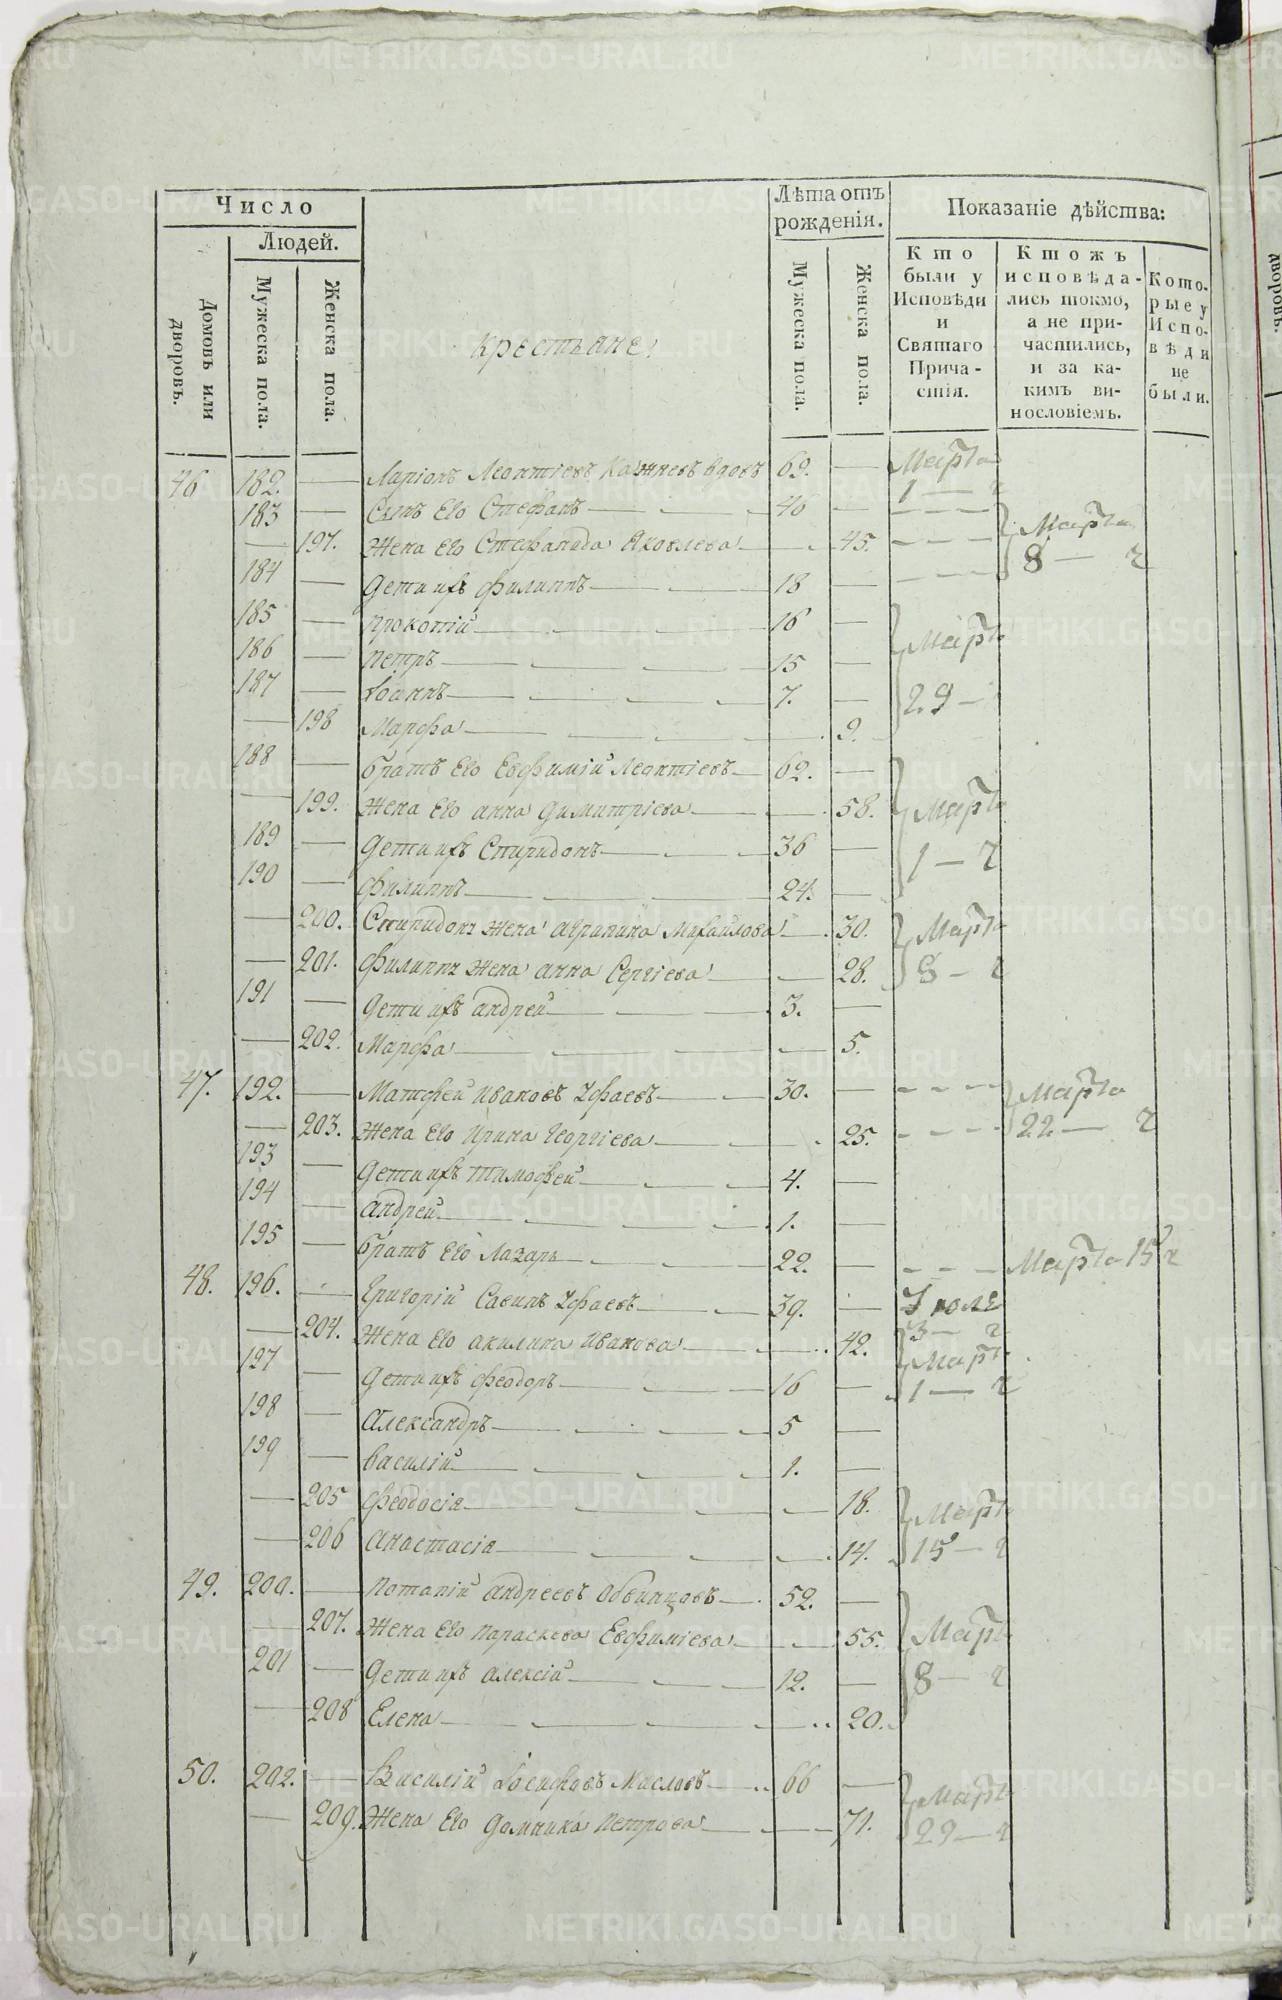 Число
Лѣта отъ рождения.
Показаніе дѣйства:
Домовъ или дворовъ.
Людей.
Мужеска пола.
Женска пола.
Крестьяне
Мужеска пола.
Женска пола.
Кто были у Исповѣди и Святаго Причастія.
Ктожъ исповѣдались токмо, а не причастились, и за какимъ винословіемъ.
Которые у Исповѣди не были.
46 182. — Ларіонъ Леонтіевъ вдовъ 69. — Марта 1 — ч
183 — Сынъ Его Стефанъ 46 —
— 197. Жена Его Стефанида Яковлева 45. Марта 8 — ч
184 — Дети ихъ Филиппъ 18 —
185 — Прокопій 16 —
186 — Петръ 15 — Марта
187 — Іоаннъ 7. — 29 —
— 198 Марфа 9.
188 — Братъ Его Евфимій Леонтіевъ 62. —
— 199. Жена Его Анна Димитріева 58. Марта
189 — Дети ихъ Спиридонъ 36 — 1 — ч
190 — Филиппъ 24. —
— 200. Спиридон жена Агрипина Михайлова 30. Марта
— 201. Филиппъ жена Анна Сергіева 28. 8 — ч
191 — Дети ихъ Андрей 3. —
— 202. Марфа 5.
47. 192. — Матфей Ивановъ 30. — Марта
— 203. Жена Его Ирина Георгіева 25. 22 — ч
193 — Дети ихъ Тимофей 4. —
194 — Андрей 1. —
195 — Братъ Его Лазарь 22. — Марта 15 ч
48. 196. — Григорій Савинъ 39. — Іюля 3 — ч
— 204. Жена Его Акилина Иванова 42. Марта
197 — Дети ихъ Феодоръ 16 — 1 — ч
198 — Александръ 5 —
199 — Василій 1. —
— 205 Феодосія 18. Марта
— 206 Анастасія 14. 15 — ч
49. 200. — Потапій Андреевъ 52. —
— 207. Жена Его Параскева Евфиміева 55. Марта
201 — Дети ихъ Алексій 12. — 8 — ч
— 208 Елена 20.
50. 202. — Василій Іосифовъ Масловъ 66 — Марта
— 209. Жена Его Домника Петрова 71. 29 — ч
METRIKI.GASO-URAL.RU